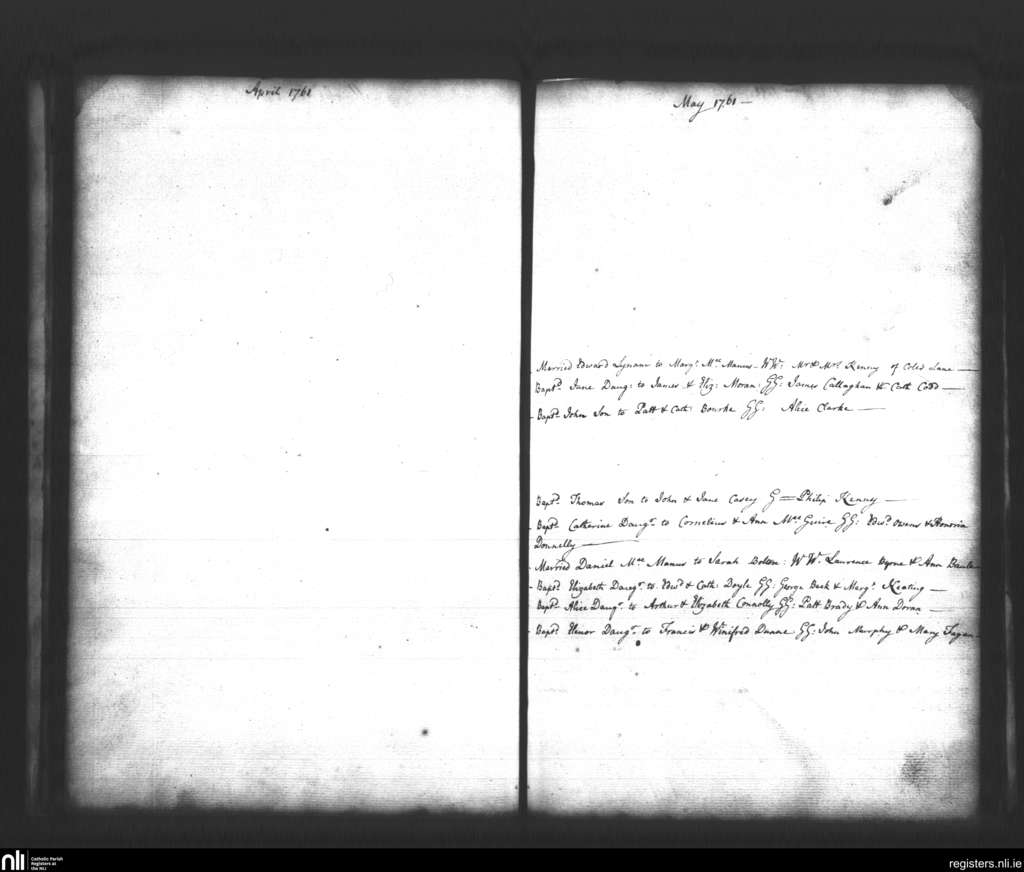 April 1761
May 1761 —
Married Edward Lynam to Marg.t M.c Manus - W W.s Mr & Mrs Kenny of Coles Lane —
Bapt.d Jane Daug.r to James & Eliz: Moran: GG: James Callaghan & Cath Codd —
Bapt.d John Son to Patt & Cath: Bourke GG: Alice Clarke —
Bapt.d Thomas Son to John & Jane Casey G = Philip Kenny —
Bapt.d Catherine Daug.r to Cornelius & Ann M.c Guire GG: Edw.d Owens & Honoria
Donnelly —
Married Daniel M.c Manus to Sarah Bolton: W W.s Laurence Byrne & Ann
Bapt.d Elizabeth Daug.r to Edw.d & Cath: Doyle GG: George Beck & Marg.t Keating —
Bapt.d Alice Daug.r to Arthur & Elizabeth Connolly GG: Patt Brady & Ann Doran —
Bapt.d Elenor Daug.r to Francis & Winifred Dunne GG: John Murphy & Mary Fagan
nli
Catholic Parish
Registers at
the NLI
registers.nli.ie